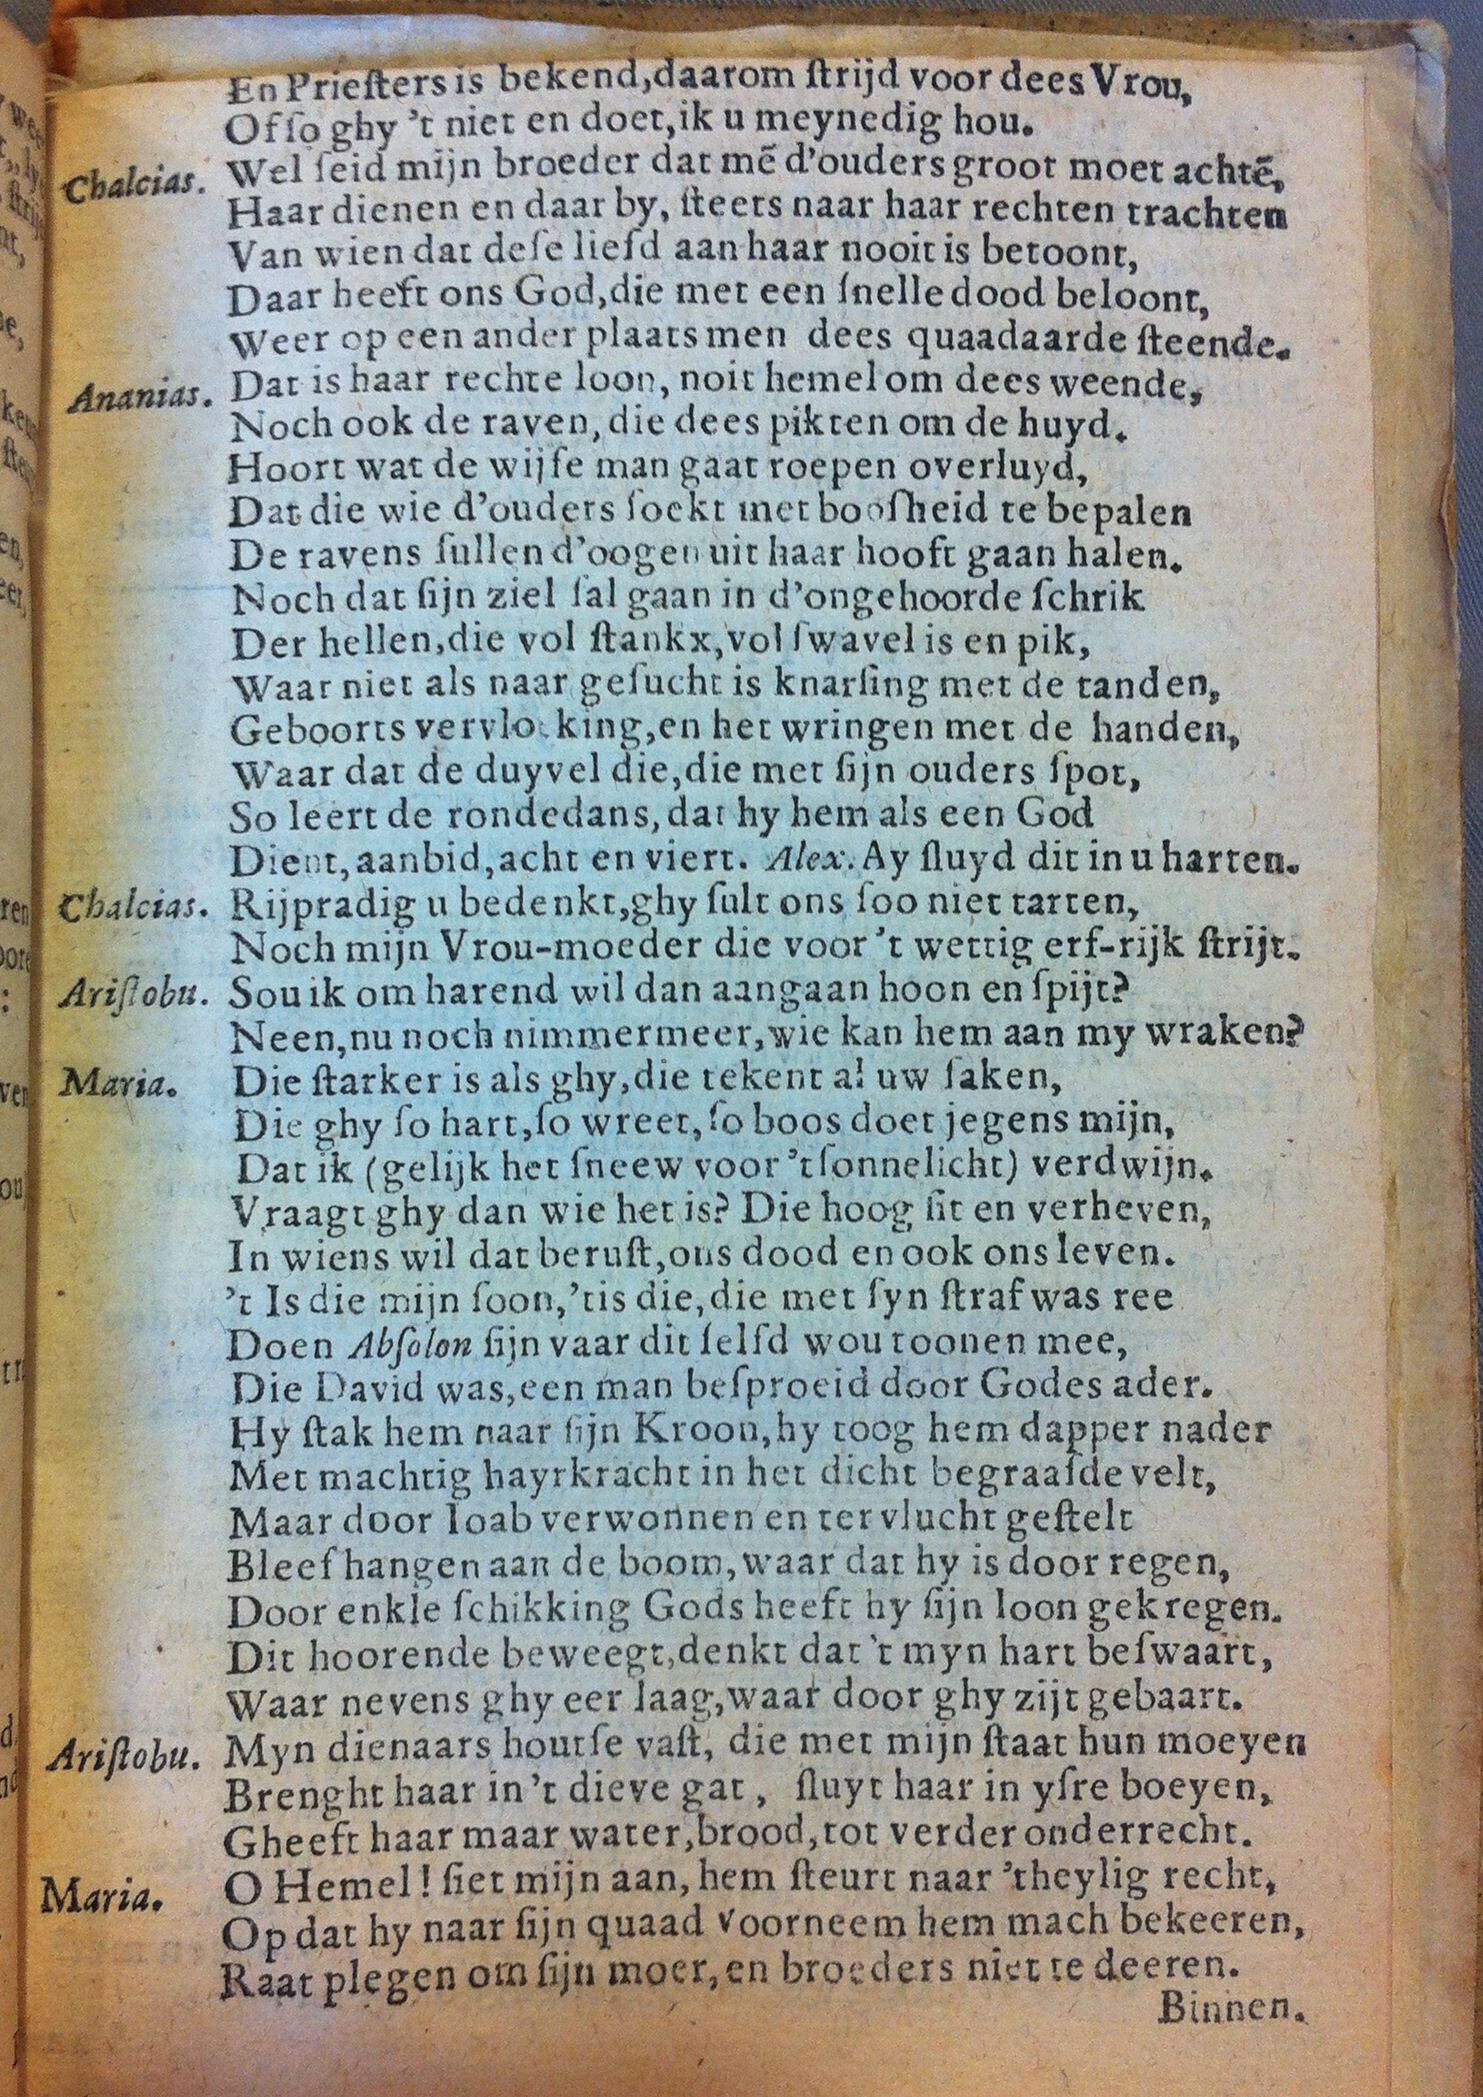 En Prieſters is bekend,daarom ſtrijd voor dees Vrou,
Of ſo ghy 't niet en doet,ik u meynedig hou.
Chalcias. Wel ſeid mijn broeder dat mẽ d'ouders groot moet achtẽ,
Haar dienen en daar by, ſteets naar haar rechten trachten
Van wien dat deſe lieſd aan haar nooit is betoont,
Daar heeft ons God,die met een ſnelle dood beloont,
Weer op een ander plaats men dees quaadaarde ſteende.
Ananias. Dat is haar rechte loon, noit hemel om dees weende,
Noch ook de raven, die dees pikten om de huyd.
Hoort wat de wijſe man gaat roepen overluyd,
Dat die wie d'ouders ſoekt met boosheid te bepalen
De ravens ſullen d'oogen uit haar hooft gaan halen.
Noch dat ſijn ziel ſal gaan in d'ongehoorde ſchrik
Der hellen,die vol ſtankx,vol ſwavel is en pik,
Waar niet als naar geſucht is knarſing met de tanden,
Geboorts vervloeking,en het wringen met de handen,
Waar dat de duyvel die,die met ſijn ouders ſpot,
So leert de rondedans, dat hy hem als een God
Dient,aanbid,acht en viert. Alex. Ay ſluyd dit in u harten.
Chalcias. Rijpradig u bedenkt,ghy ſult ons ſoo niet tarten,
Noch mijn Vrou-moeder die voor 't wettig erf-rijk ſtrijt.
Ariſtobu. Sou ik om harend wil dan aangaan hoon en ſpijt?
Neen,nu noch nimmermeer,wie kan hem aan my wraken?
Maria. Die ſtarker is als ghy,die tekent al uw ſaken,
Die ghy ſo hart,ſo wreet,ſo boos doet jegens mijn,
Dat ik (gelijk het ſneew voor 't ſonnelicht) verdwijn.
Vraagt ghy dan wie het is? Die hoog ſit en verheven,
In wiens wil dat beruſt,ons dood en ook ons leven.
't Is die mijn ſoon,'tis die,die met ſyn ſtraf was ree
Doen Abſolon ſijn vaar dit ſelſd wou toonen mee,
Die David was,een man beſproeid door Godes ader.
Hy ſtak hem naar ſijn Kroon,hy toog hem dapper nader
Met machtig hayrkracht in het dicht begraaſde velt,
Maar door Ioab verwonnen en ter vlucht geſtelt
Bleef hangen aan de boom,waar dat hy is door regen,
Door enkle ſchikking Gods heeft hy ſijn loon gekregen.
Dit hoorende beweegt,denkt dat 't myn hart beſwaart,
Waar nevens ghy eer laag,waar door ghy zijt gebaart.
Ariſtobu. Myn dienaars houtſe vaſt, die met mijn ſtaat hun moeyen
Brenght haar in 't dieve gat, ſluyt haar in yſre boeyen,
Gheeft haar maar water,brood,tot verder onderrecht.
Maria. O Hemel! ſiet mijn aan, hem ſteurt naar 't heylig recht,
Op dat hy naar ſijn quaad voorneem hem mach bekeeren,
Raat plegen om ſijn moer,en broeders niet te deeren.
Binnen.